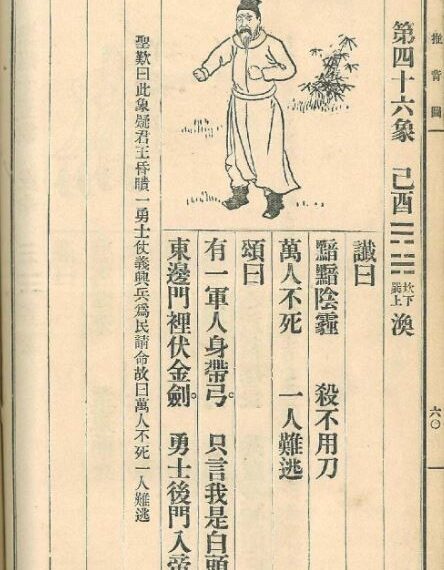 推背圖
六〇
第四十六象 己酉 ䷺ 坎下 巽上 渙
讖曰
黯黯陰霾 殺不用刀
萬人不死 一人難逃
頌曰
有一軍人身帶弓。 只言我是白頭
東邊門裡伏金劍。 勇士後門入帝
聖歎曰此象疑君王昏瞶一勇士仗義興兵為民請命故曰萬人不死一人難逃